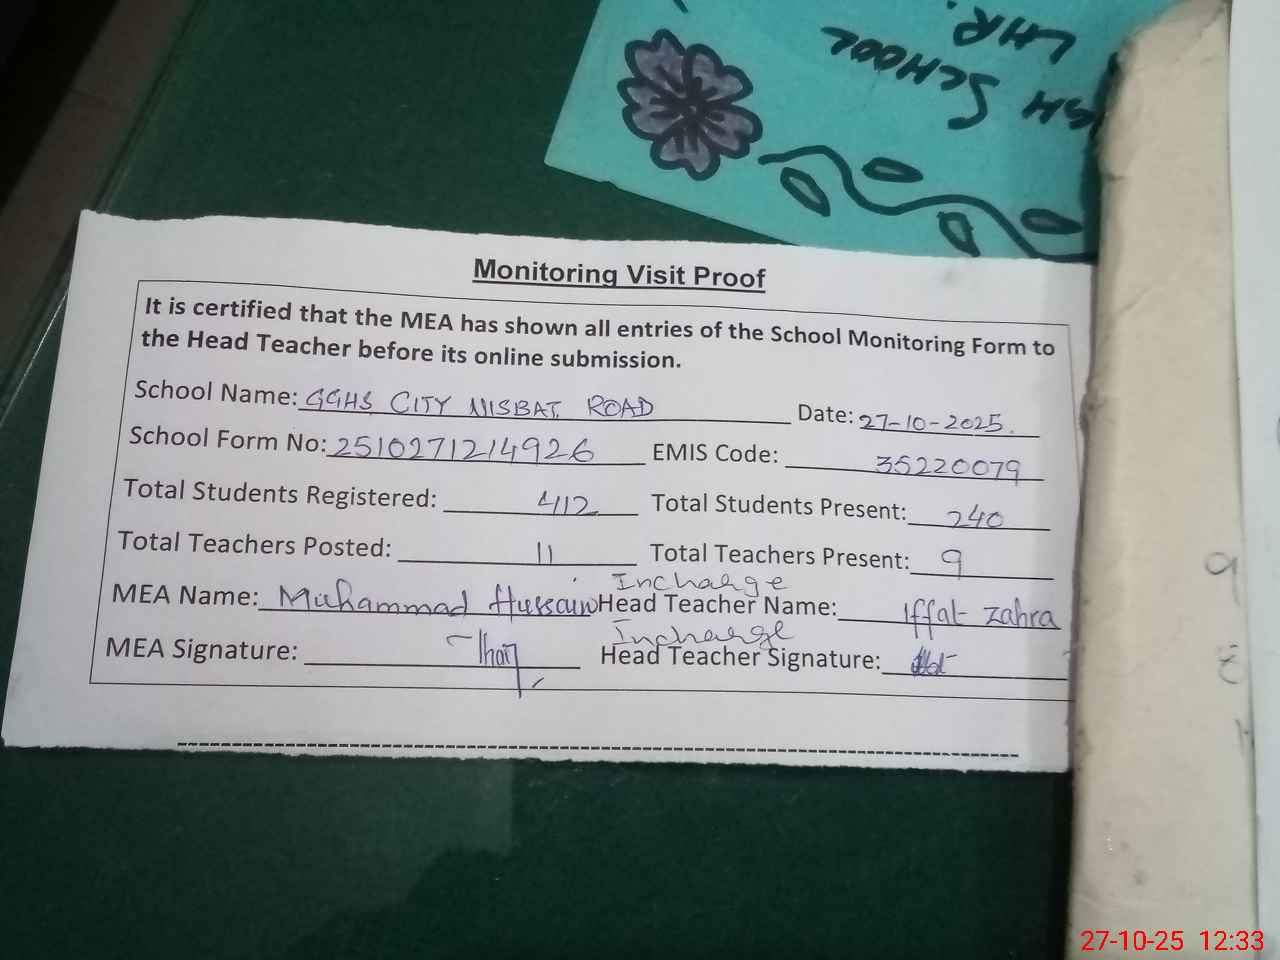 LHR.
SCHOOL
Monitoring Visit Proof
It is certified that the MEA has shown all entries of the School Monitoring Form to
the Head Teacher before its online submission.
School Name: GGHS CITY NISBAT ROAD Date: 27-10-2025.
School Form No: 2510271214926 EMIS Code: 35220079
Total Students Registered: 412 Total Students Present: 240
Total Teachers Posted: 11 Total Teachers Present: 9
Incharge
MEA Name: Muhammad Hussain Head Teacher Name: Iffat Zahra
Incharge
MEA Signature: Head Teacher Signature:
27-10-25 12:33